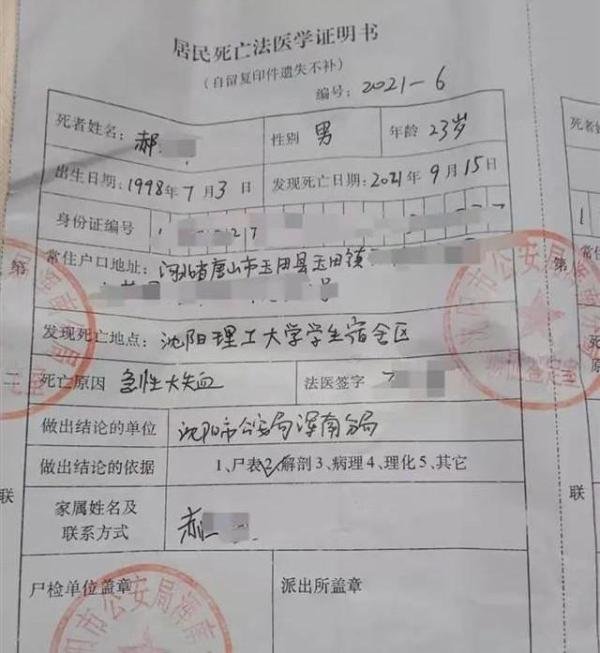 居民死亡法医学证明书
（自留复印件遗失不补）
编号：2021-6
死者姓名：郝 性别 男 年龄 23岁
出生日期：1998年7月3日 发现死亡日期：2021年9月15日
身份证编号
常住户口地址：河北省唐山市玉田县玉田镇
号
发现死亡地点：沈阳理工大学学生宿舍区
死亡原因 急性大失血 法医签字
做出结论的单位 沈阳市公安局浑南分局
做出结论的依据 1、尸表2、解剖3、病理4、理化5、其它
家属姓名及
联系方式
郝
尸检单位盖章 派出所盖章
第
二
联
第
联
死者姓
常住户
发现死
死亡原
做出
做出
沈阳市公安局浑南分局
阳市公安局浑南